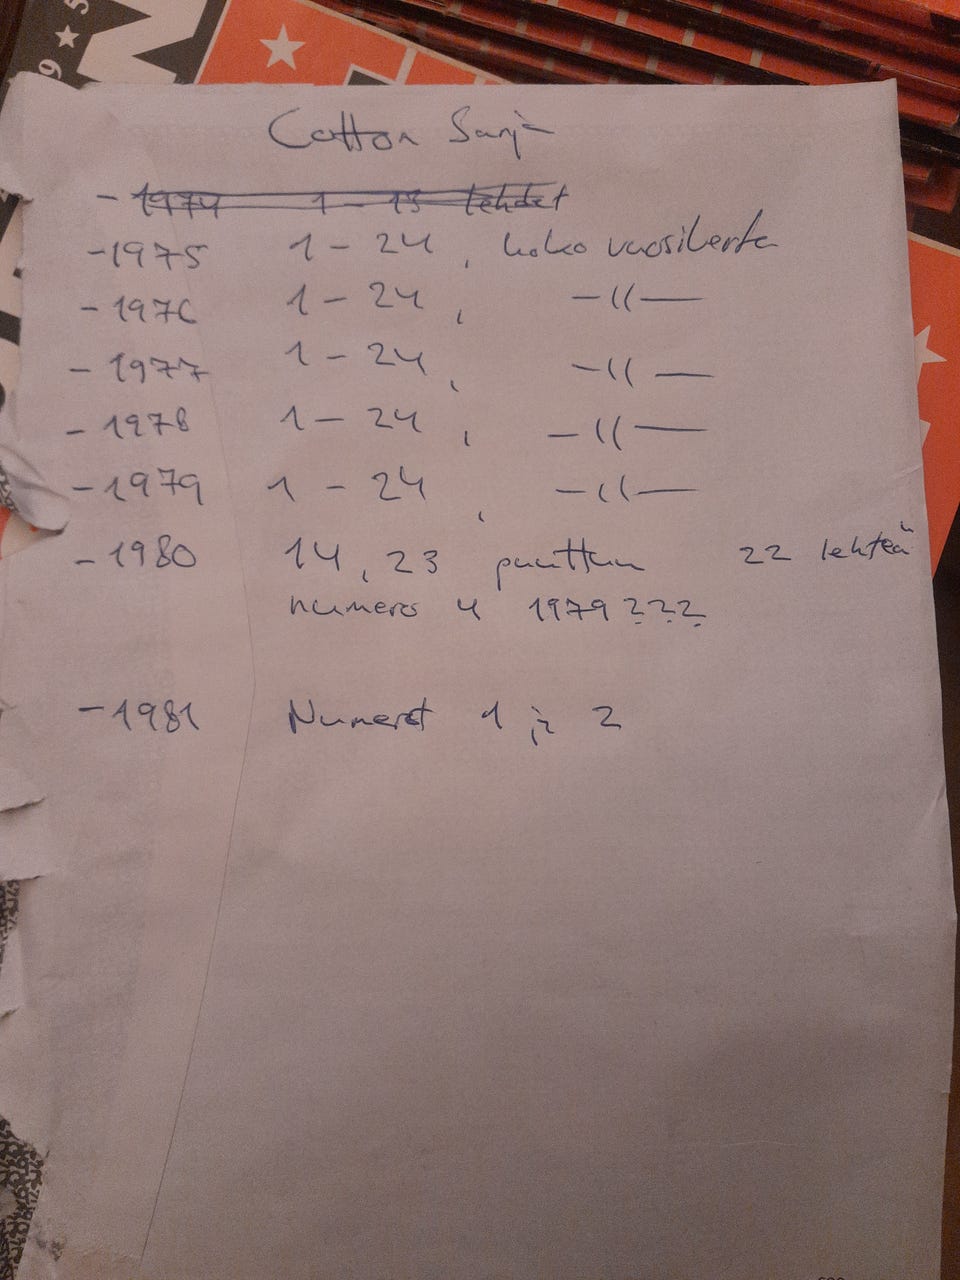 Cotton Sarja
- 1974 1 - 13 lehdet
- 1975 1 - 24, koko vuosikerta
- 1976 1 - 24, -〃-
- 1977 1 - 24, -〃-
- 1978 1 - 24, -〃-
- 1979 1 - 24, -〃-
- 1980 14, 23 puuttuu 22 lehteä
numero 4 1979???
- 1981 Numerot 1 ja 2